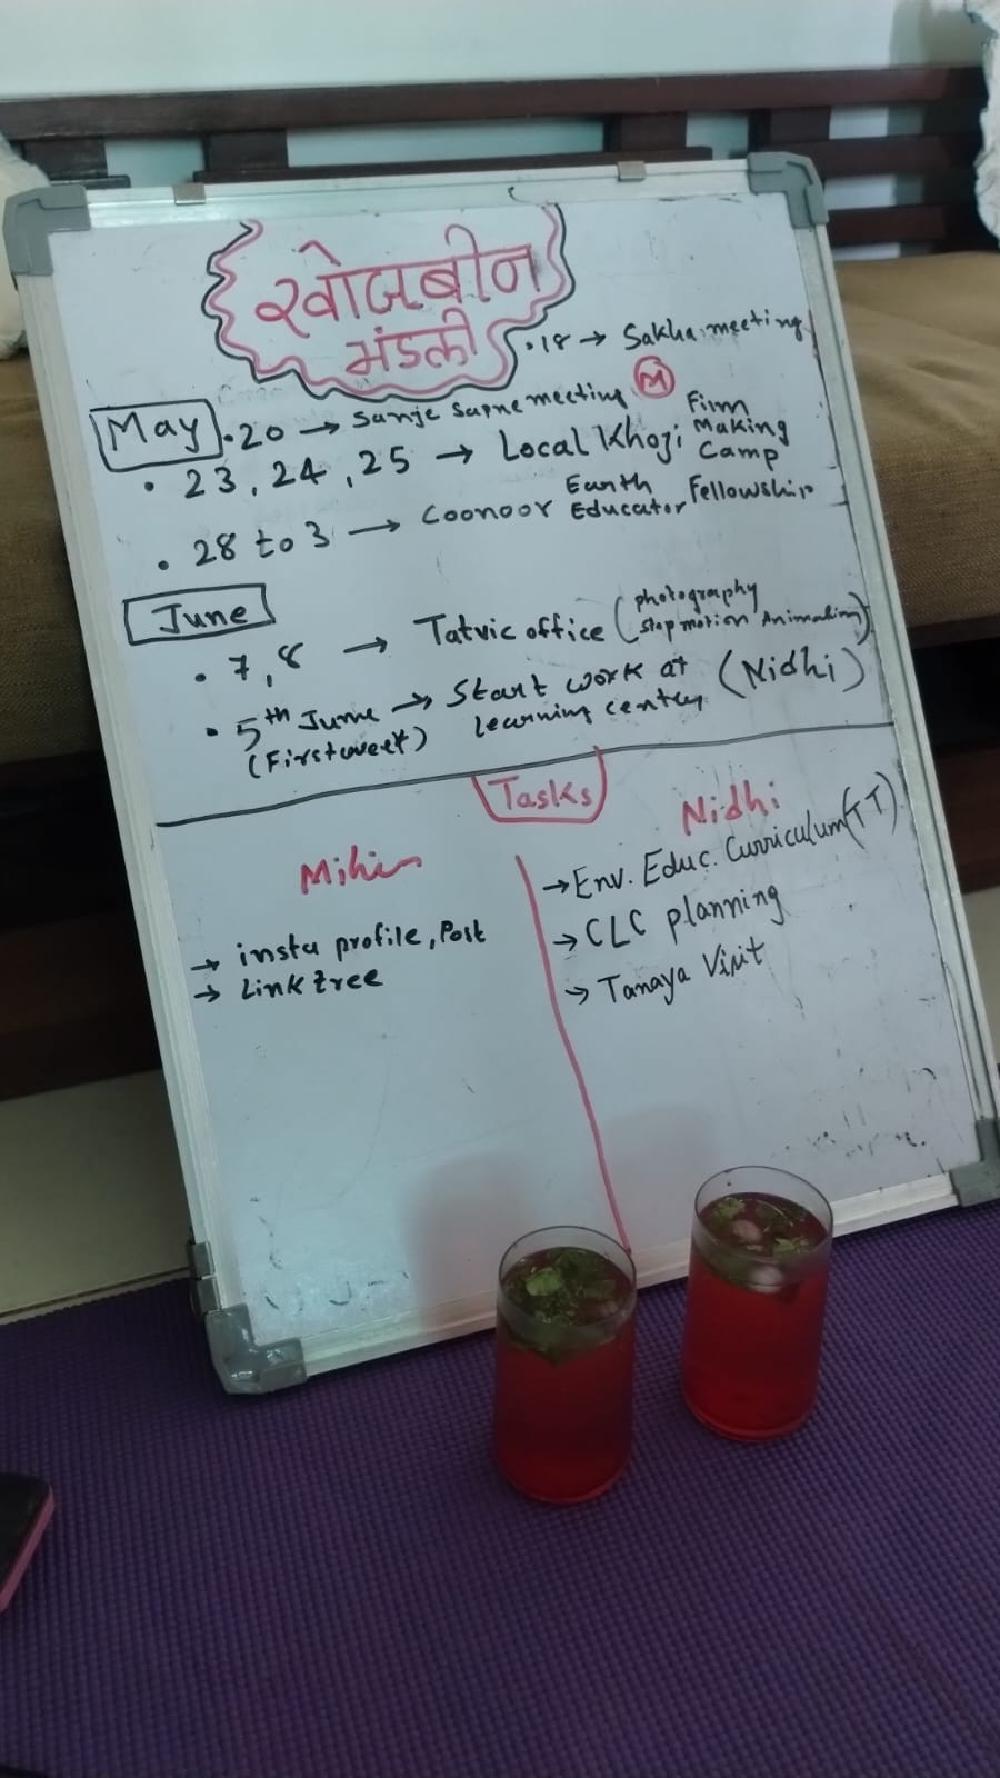 खोजबीन
मंडली
.18 → Sakha meeting
May
.20 → Sanje Sapne meeting (M)
• 23, 24, 25 → Local Khoji Film Making Camp
• 28 to 3 → Coonoor Earth Educator Fellowship
June
• 7, 8 → Tatvic office (photography stop motion Animation)
• 5th June → Start work at learning center (Nidhi)
(First week)
Tasks
Mihir
→ insta profile, Post
→ Linktree
Nidhi
→ Env. Educ. Curriculum (TT)
→ CLC planning
→ Tanaya Visit